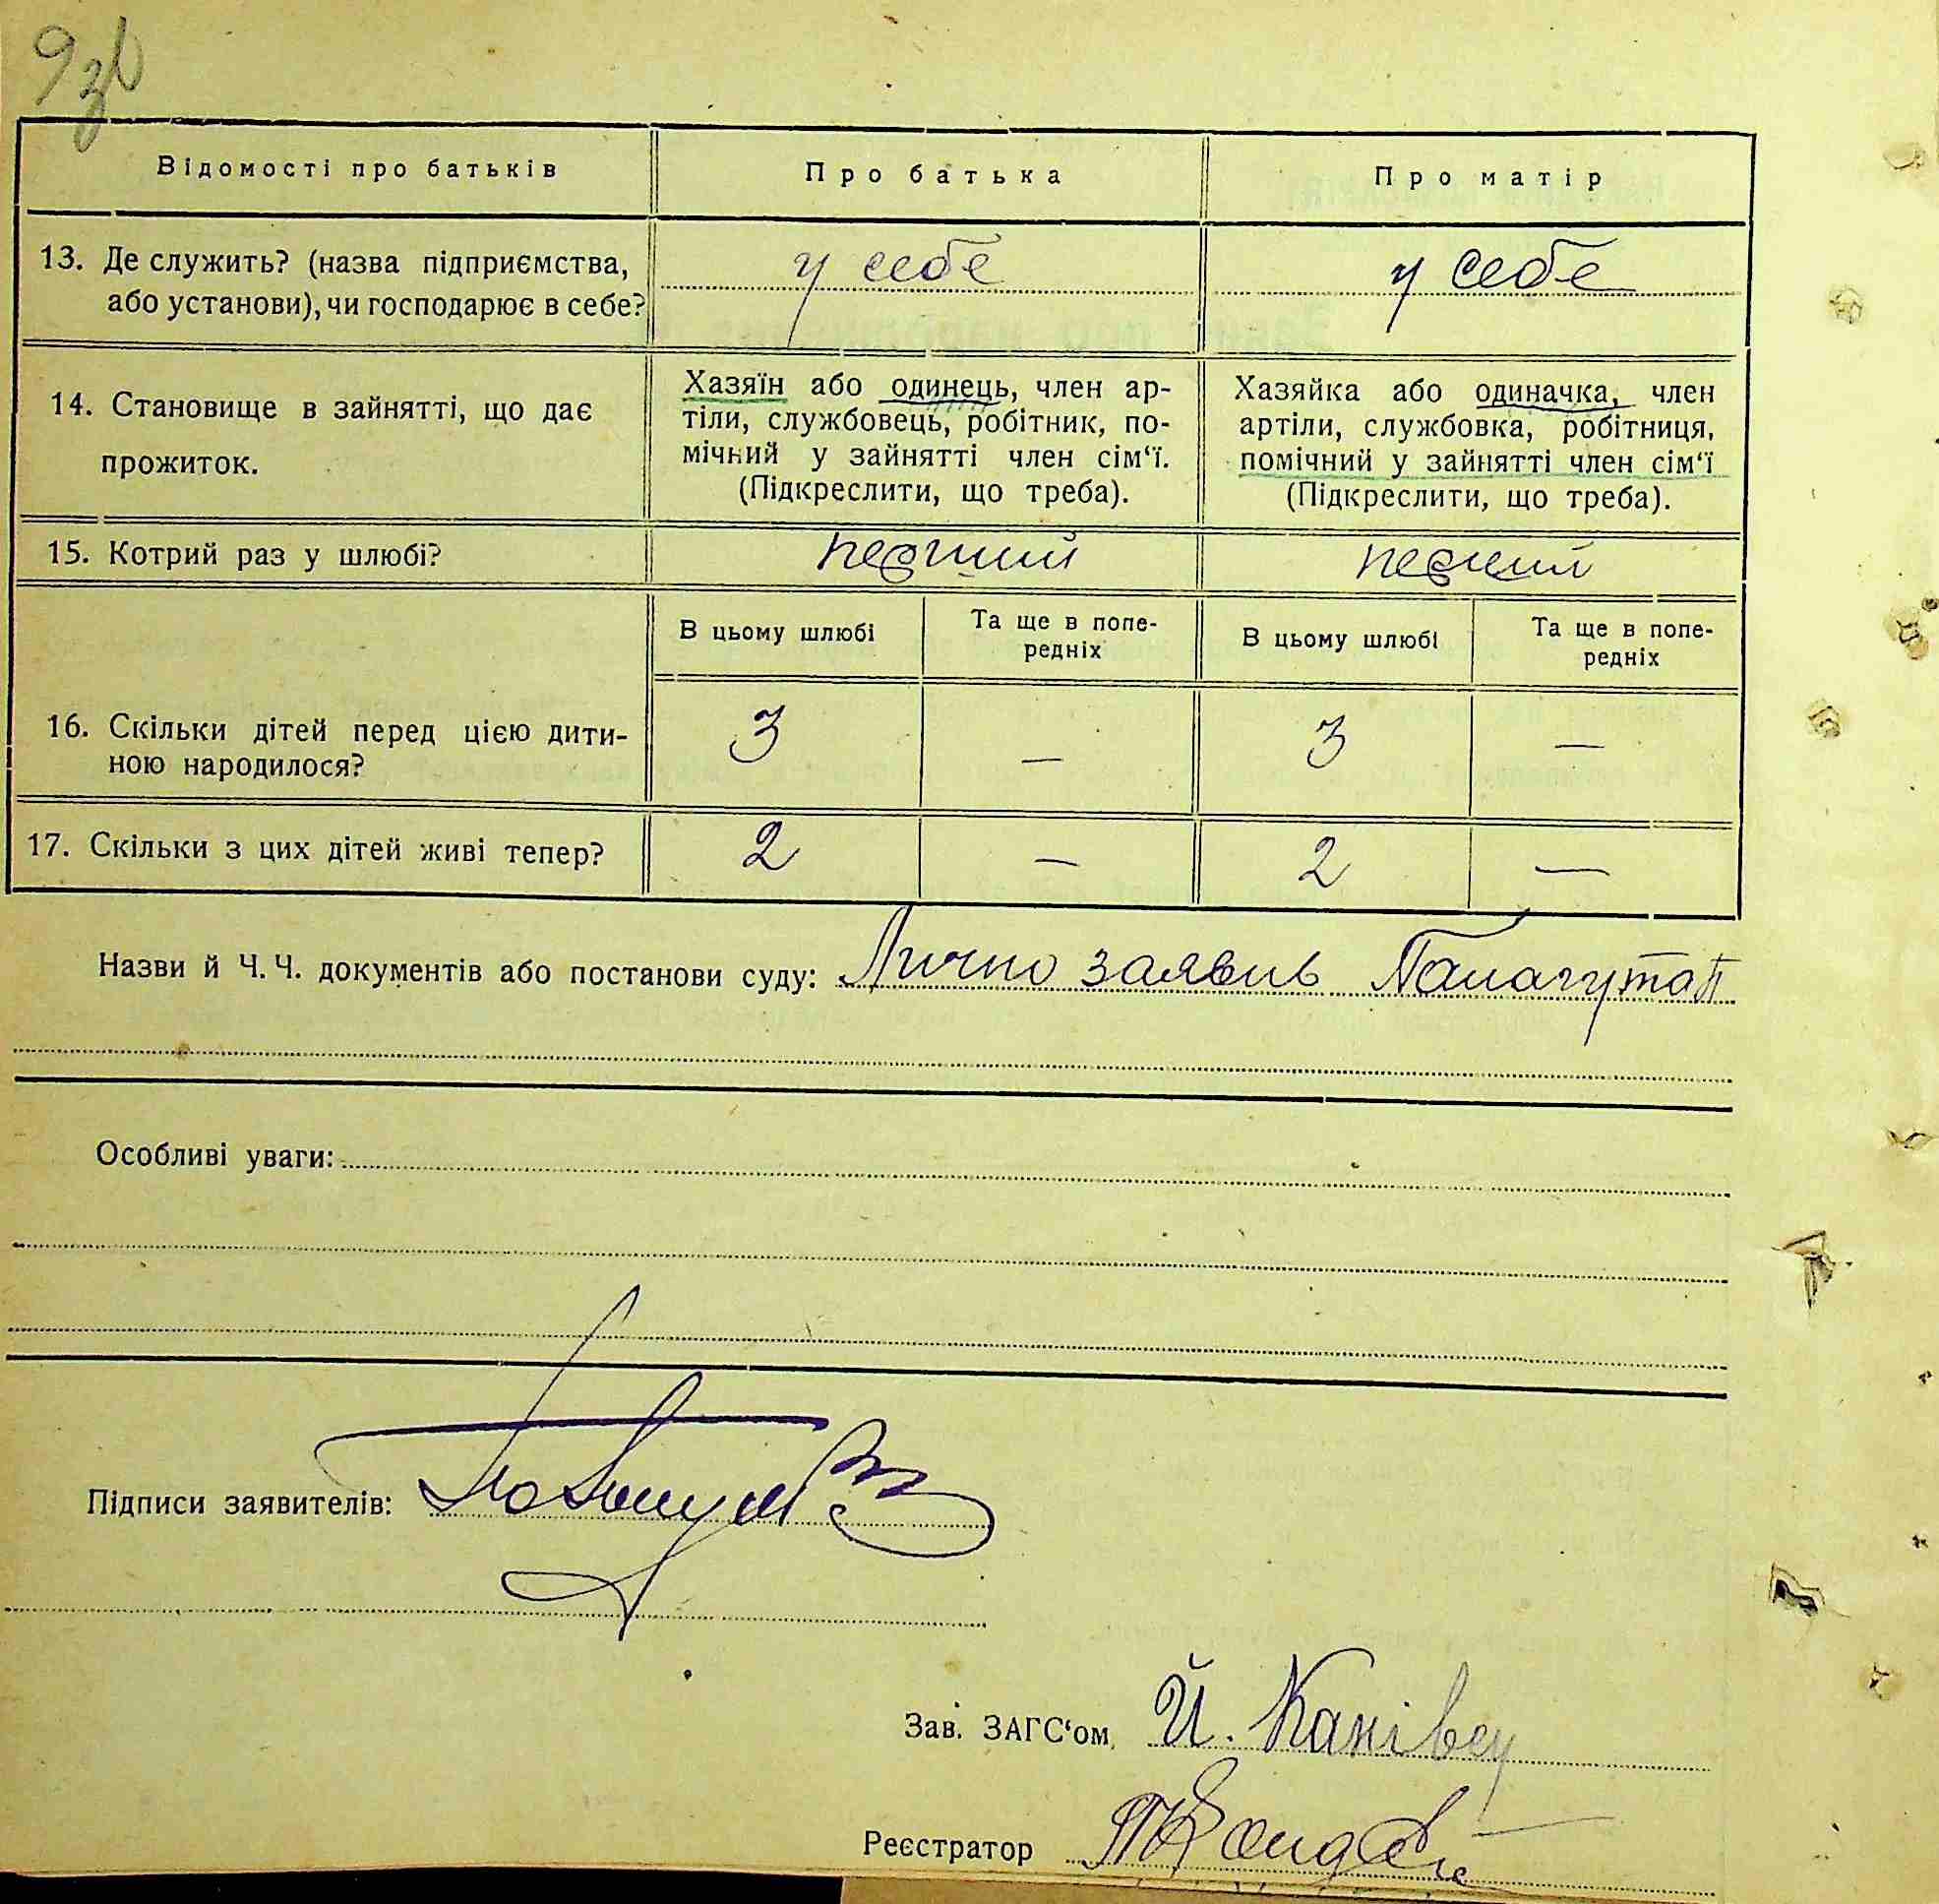 9 зв
Відомості про батьків Про батька Про матір
13. Де служить? (назва підприємства, у себе у себе
або установи), чи господарює в себе?
Хазяїн або одинець, член ар- Хазяйка або одиначка, член
14. Становище в зайнятті, що дає тіли, службовець, робітник, по- артіли, службовка, робітниця,
прожиток. мічний у зайнятті член сім'ї. помічний у зайнятті член сім'ї
(Підкреслити, що треба). (Підкреслити, що треба).
15. Котрий раз у шлюбі? перший перший
В цьому шлюбі Та ще в попе- В цьому шлюбі Та ще в попе-
редніх редніх
16. Скільки дітей перед цією дити- 3 — 3 —
ною народилося?
17. Скільки з цих дітей живі тепер? 2 — 2 —
Назви й Ч. Ч. документів або постанови суду: Лично заявив
Особливі уваги:
Підписи заявителів:
Зав. ЗАГС'ом Й. Канівец
Реєстратор